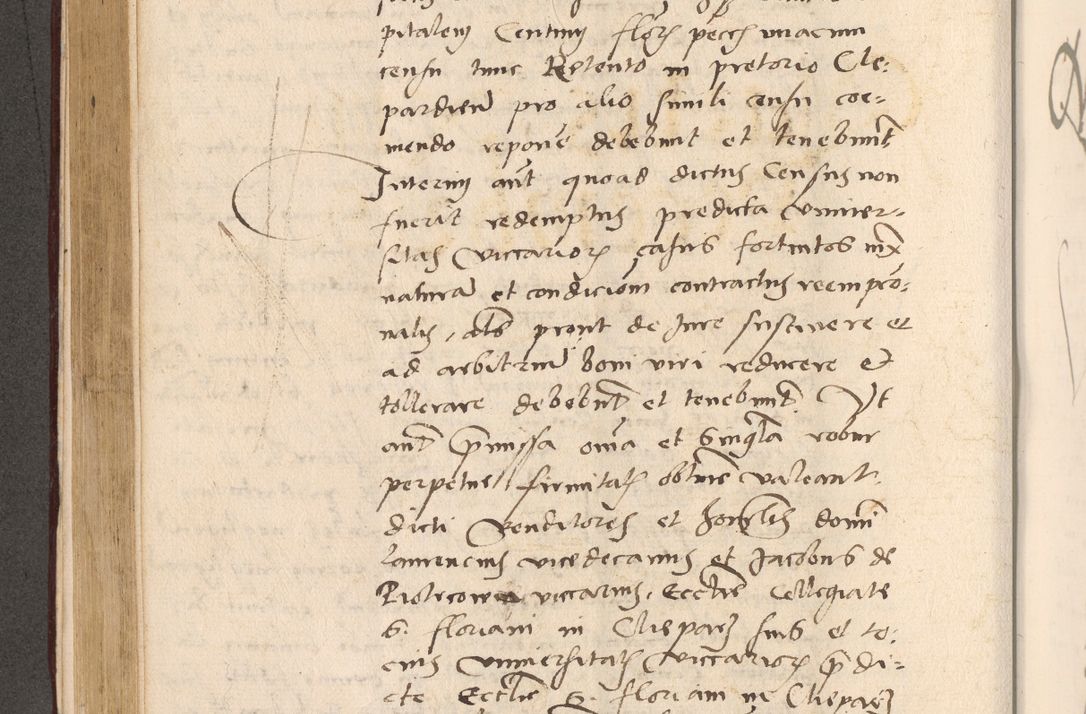 pitalem Centum flor pecc unacum
censu tunc Retento in pretorio Cle:
pardien pro alio simili censu coe=
mendo repone debebunt et tenebunt
Interim aut quoad dictus Census non
fuerit redemptus predicta Vniuer-
sitas Viccarior casus fortuitos iux
natura et condicion contractus reempcio:
nalis, als prout de Iure sustinere et
ad arbitriu boni viri reducere et
tollerare debebut et tenebunt Vt
aut pmissa oma et Singla robur
perpetue firmitatis obtine valeant.
dicti Venditores et honbles domi
laurencius vicedecanus et Jacobus de
Piotrcowia viccarius, Ecclie Collegiate
S. floriani in Clepar suis et to:
cius Vniuersitatis Viccarior pdi=
cte Ecclie S. floriani in Clepar